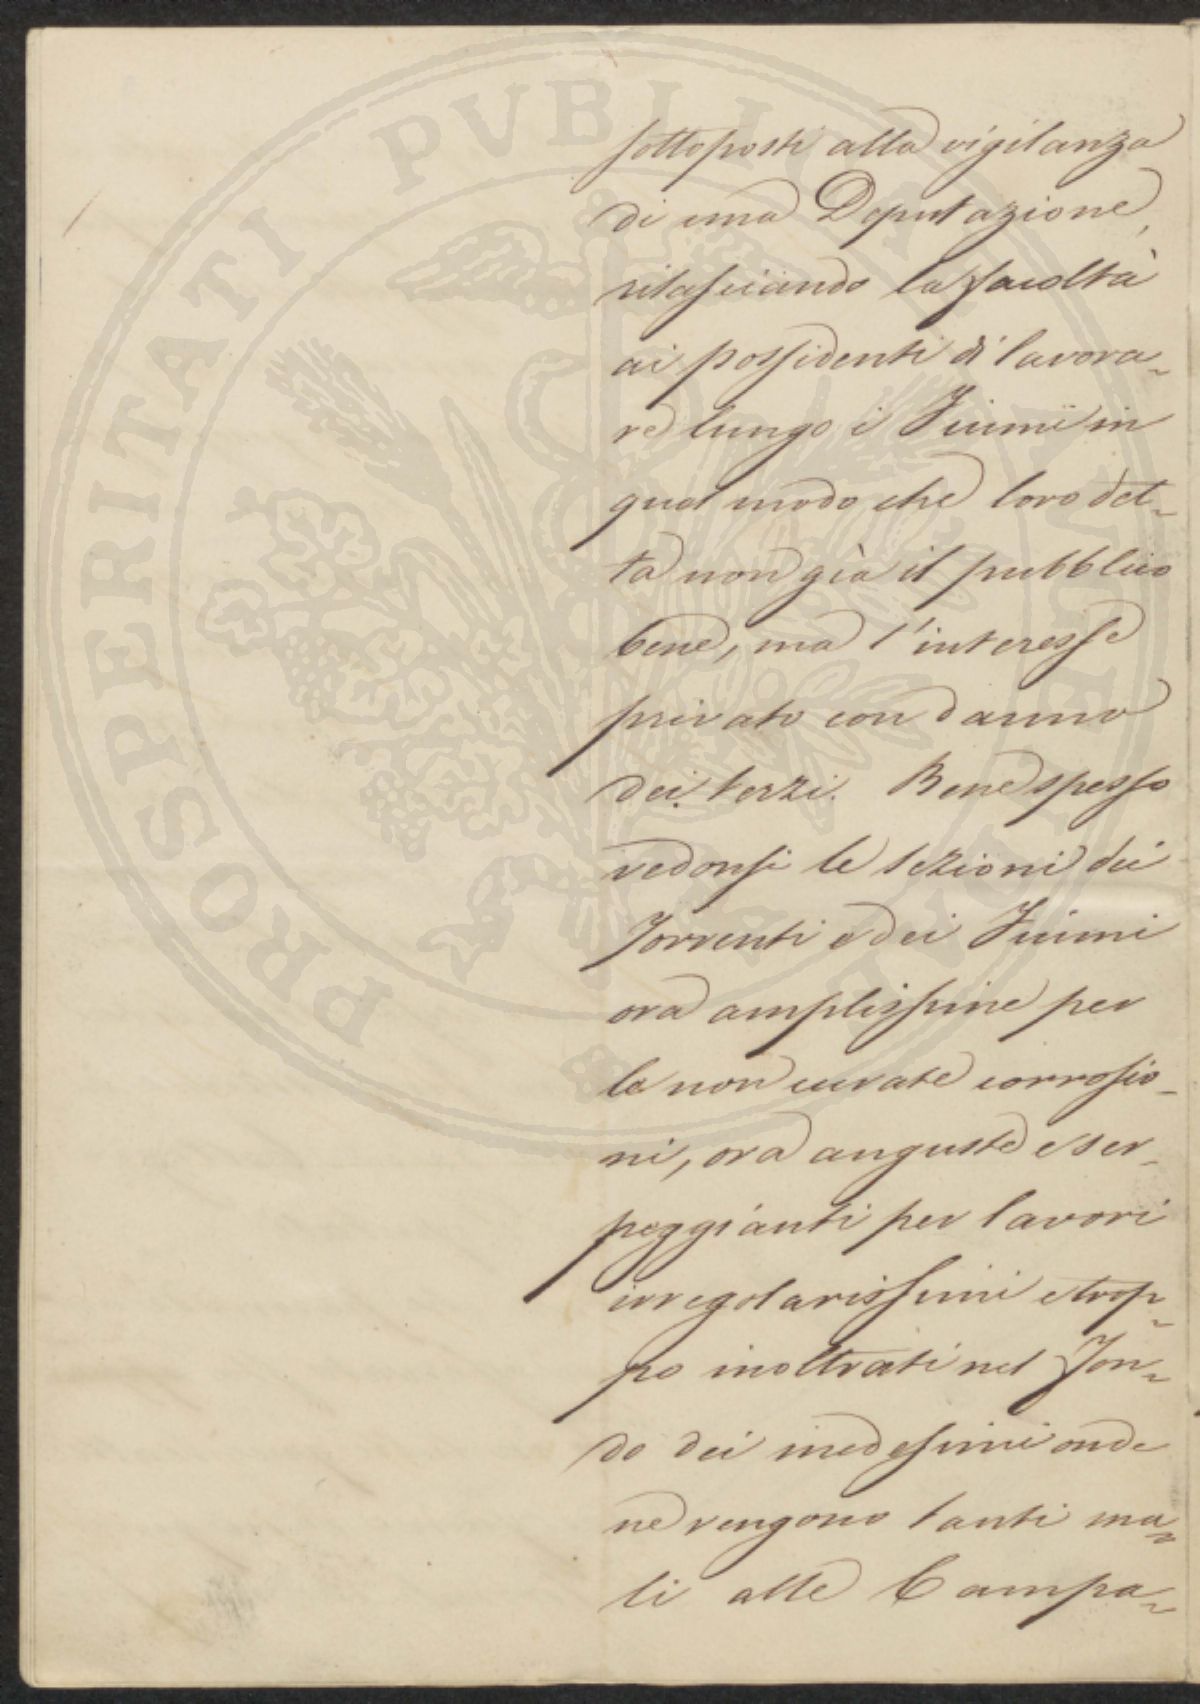 sottoposti alla vigilanza
di una Deputazione,
rilasciando la facoltà
ai possidenti di lavora-
re lungo i Fiumi in
quel modo che loro det-
ta non già il pubblico
bene, ma l'interesse
privato con danno
dei terzi. Bene spesso
vedonsi le sezioni dei
Torrenti e dei Fiumi
ora amplissime per
le non curate corrosio-
ni, ora anguste e ser-
peggianti per lavori
irregolarissimi e trop-
po inoltrati nel fon-
do dei medesimi onde
ne vengono tanti ma-
li alle Campa-
PROSPERITATI PVBLI